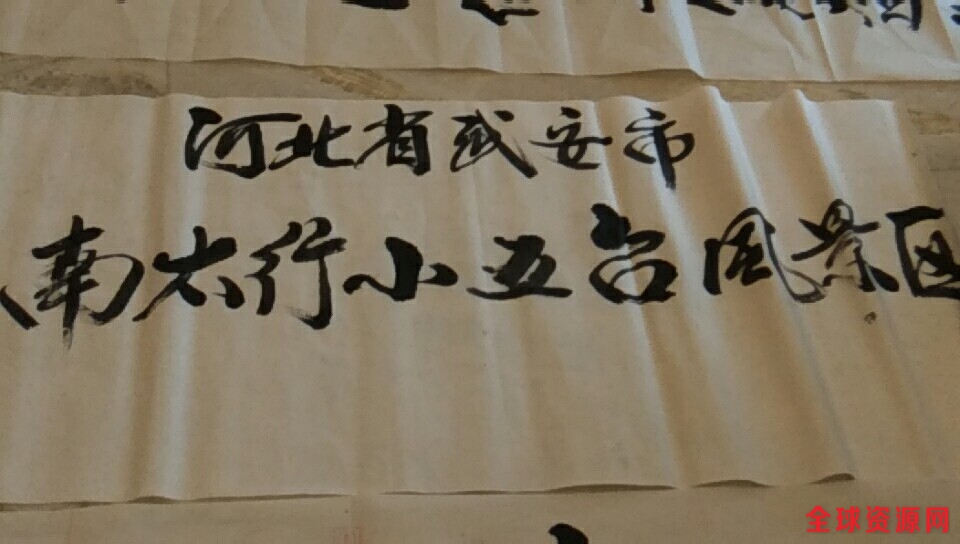 河北省武安市
南太行小五台风景区
全球资源网